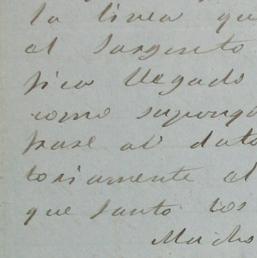 la linea que
al Sargento
llegado
como supong
frase al dato
toriamente al
que Santo los
Mucho